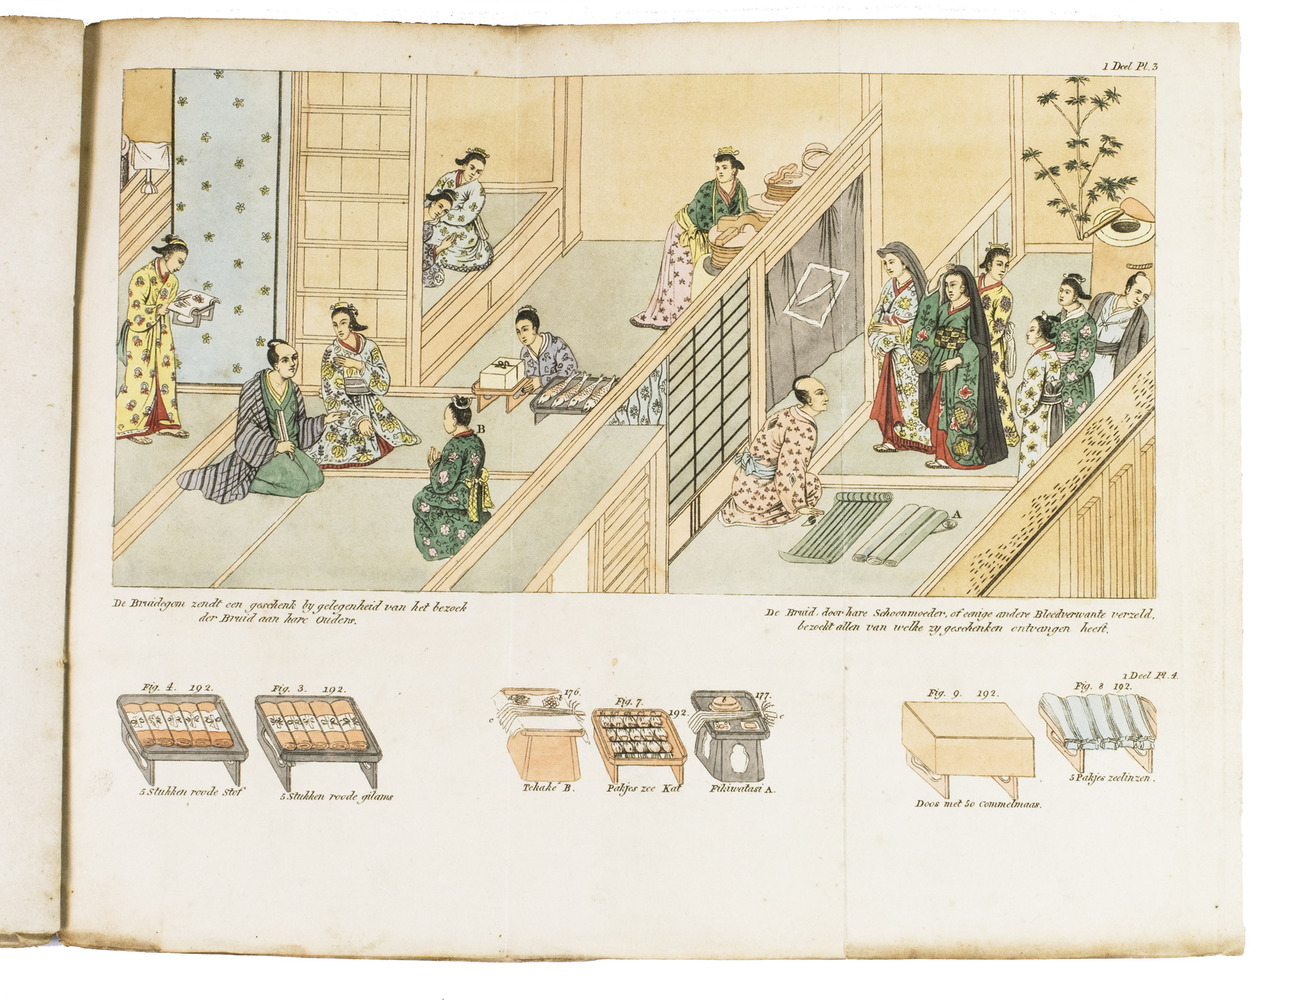 1 Deel Pl. 3
B
A
De Bruidegom zendt een geschenk by gelegenheid van het bezoek
der Bruid aan hare Ouders.
De Bruid, door hare Schoonmoeder, of eenige andere Bleedverwante verzeld,
bezoekt allen van welke zy geschenken ontvangen heeft.
1 Deel Pl. 4.
Fig. 4. 192.
5 Stukken roode Stof
Fig. 3. 192.
5 Stukken roode gilams
176.
c
Tekaké B.
Fig. 7.
192.
Pakjes zee Kat
177.
c
Fikiwatasi A.
Fig. 9. 192.
Doos met 50 Commelmaas.
Fig. 8 192.
5 Pakjes zeelinzen.